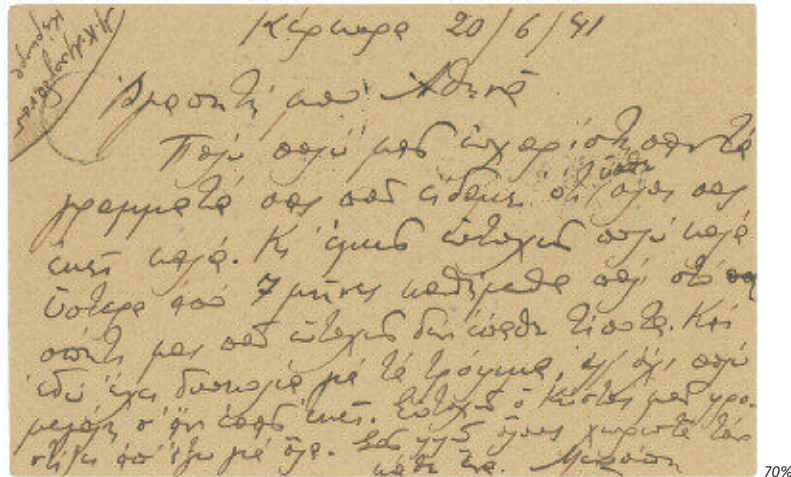 Κέρκυρα 20/6/41
Ἀγαπητή μου Ἀθηνᾶ
Πολύ πολύ μᾶς εὐχαρίστησαν τά
γράμματά σας πού εἴδαμε ὅτι εἶσθε ὅλοι σας
ἐκεῖ καλά. Κι ἐμεῖς εὐτυχῶς πολύ καλά
ὕστερα ἀπό 7 μῆνες καθήμεθα στό
σπίτι μας πού εὐτυχῶς δέν ἔπαθε τίποτα. Καί
ἐδῶ ἔχει δυσκολία μέ τά τρόφιμα, ὄχι πολύ
μεγάλη σ' ἐκεῖ. Εὐτυχῶς ὁ Κώστας μᾶς
ἀπ' ἔξω μέ ὅλα. Σᾶς ὅλους χωριστά τόν
κάθε ἕνα.
70%